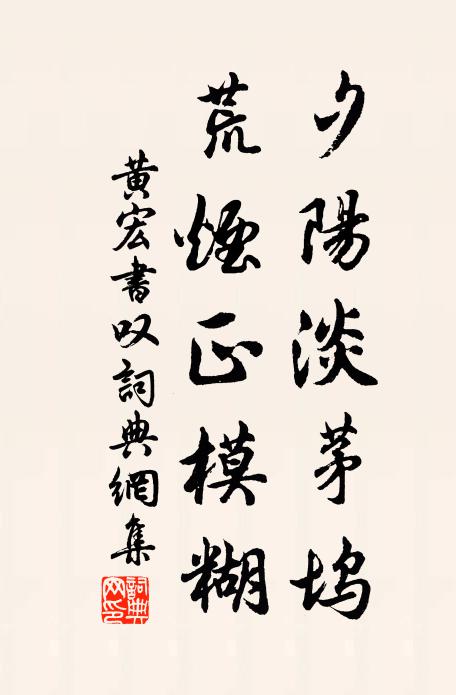 夕陽淡茅塢
荒煙正模糊
黃宏書叹詞典網集
詞典